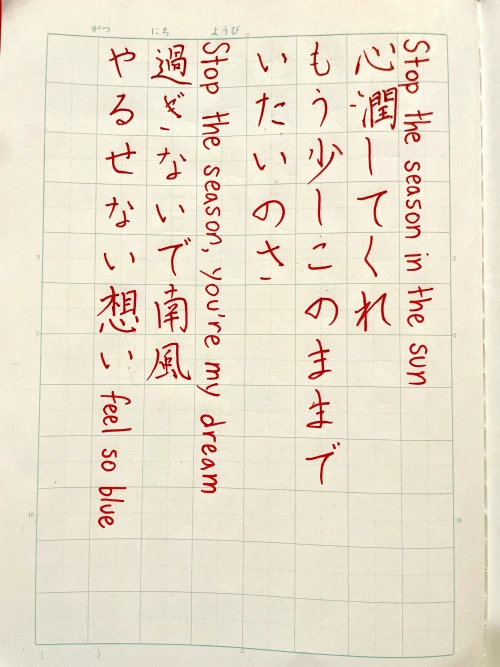 がつ にち ようび
Stop the season in the sun
心潤してくれ
もう少しこのままで
いたいのさ
Stop the season, you're my dream
過ぎないで南風
やるせない想い feel so blue